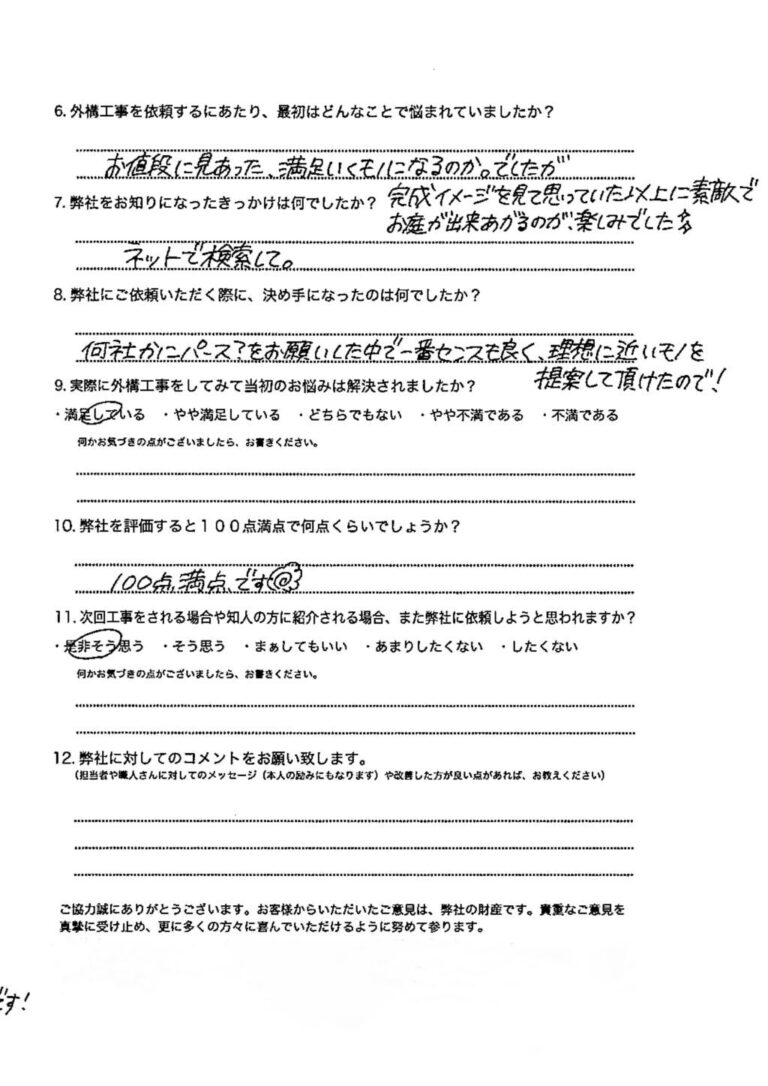 6. 外構工事を依頼するにあたり、最初はどんなことで悩まれていましたか？
お値段に見あった、満足いくモノになるのか。でしたが
完成イメージを見て思っていた以上に素敵で
お庭が出来あがるのが、楽しみでした
7. 弊社をお知りになったきっかけは何でしたか？
ネットで検索して。
8. 弊社にご依頼いただく際に、決め手になったのは何でしたか？
何社かにパース？をお願いした中で一番センスも良く、理想に近いモノを
提案して頂けたので！
9. 実際に外構工事をしてみて当初のお悩みは解決されましたか？
・満足している ・やや満足している ・どちらでもない ・やや不満である ・不満である
何かお気づきの点がございましたら、お書きください。
10. 弊社を評価すると１００点満点で何点くらいでしょうか？
100点満点です
11. 次回工事をされる場合や知人の方に紹介される場合、また弊社に依頼しようと思われますか？
・是非そう思う ・そう思う ・まぁしてもいい ・あまりしたくない ・したくない
何かお気づきの点がございましたら、お書きください。
12. 弊社に対してのコメントをお願い致します。
（担当者や職人さんに対してのメッセージ（本人の励みにもなります）や改善した方が良い点があれば、お教えください）
ご協力誠にありがとうございます。お客様からいただいたご意見は、弊社の財産です。貴重なご意見を
真摯に受け止め、更に多くの方々に喜んでいただけるように努めて参ります。
です！